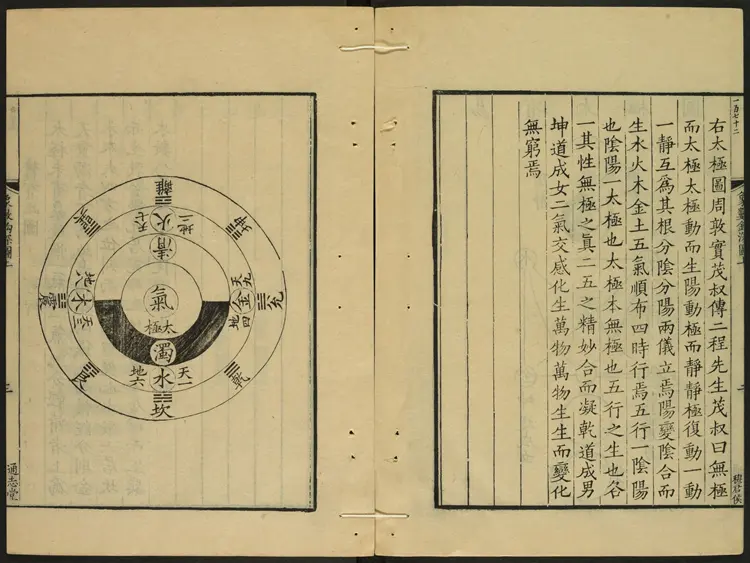 一百七十二
右太極圖周敦實茂叔傳二程先生茂叔曰無極
而太極太極動而生陽動極而靜靜極復動一動
一靜互爲其根分陰分陽兩儀立焉陽變陰合而
生水火木金土五氣順布四時行焉五行一陰陽
也陰陽一太極也太極本無極也五行之生也各
一其性無極之眞二五之精妙合而凝乾道成男
坤道成女二氣交感化生萬物萬物生生而變化
無窮焉
離
坤
兌
乾
坎
艮
震
巽
火
地二
天七
清
金
天九
地四
水
天一
地六
濁
木
天三
地八
氣
太極
三
通志堂